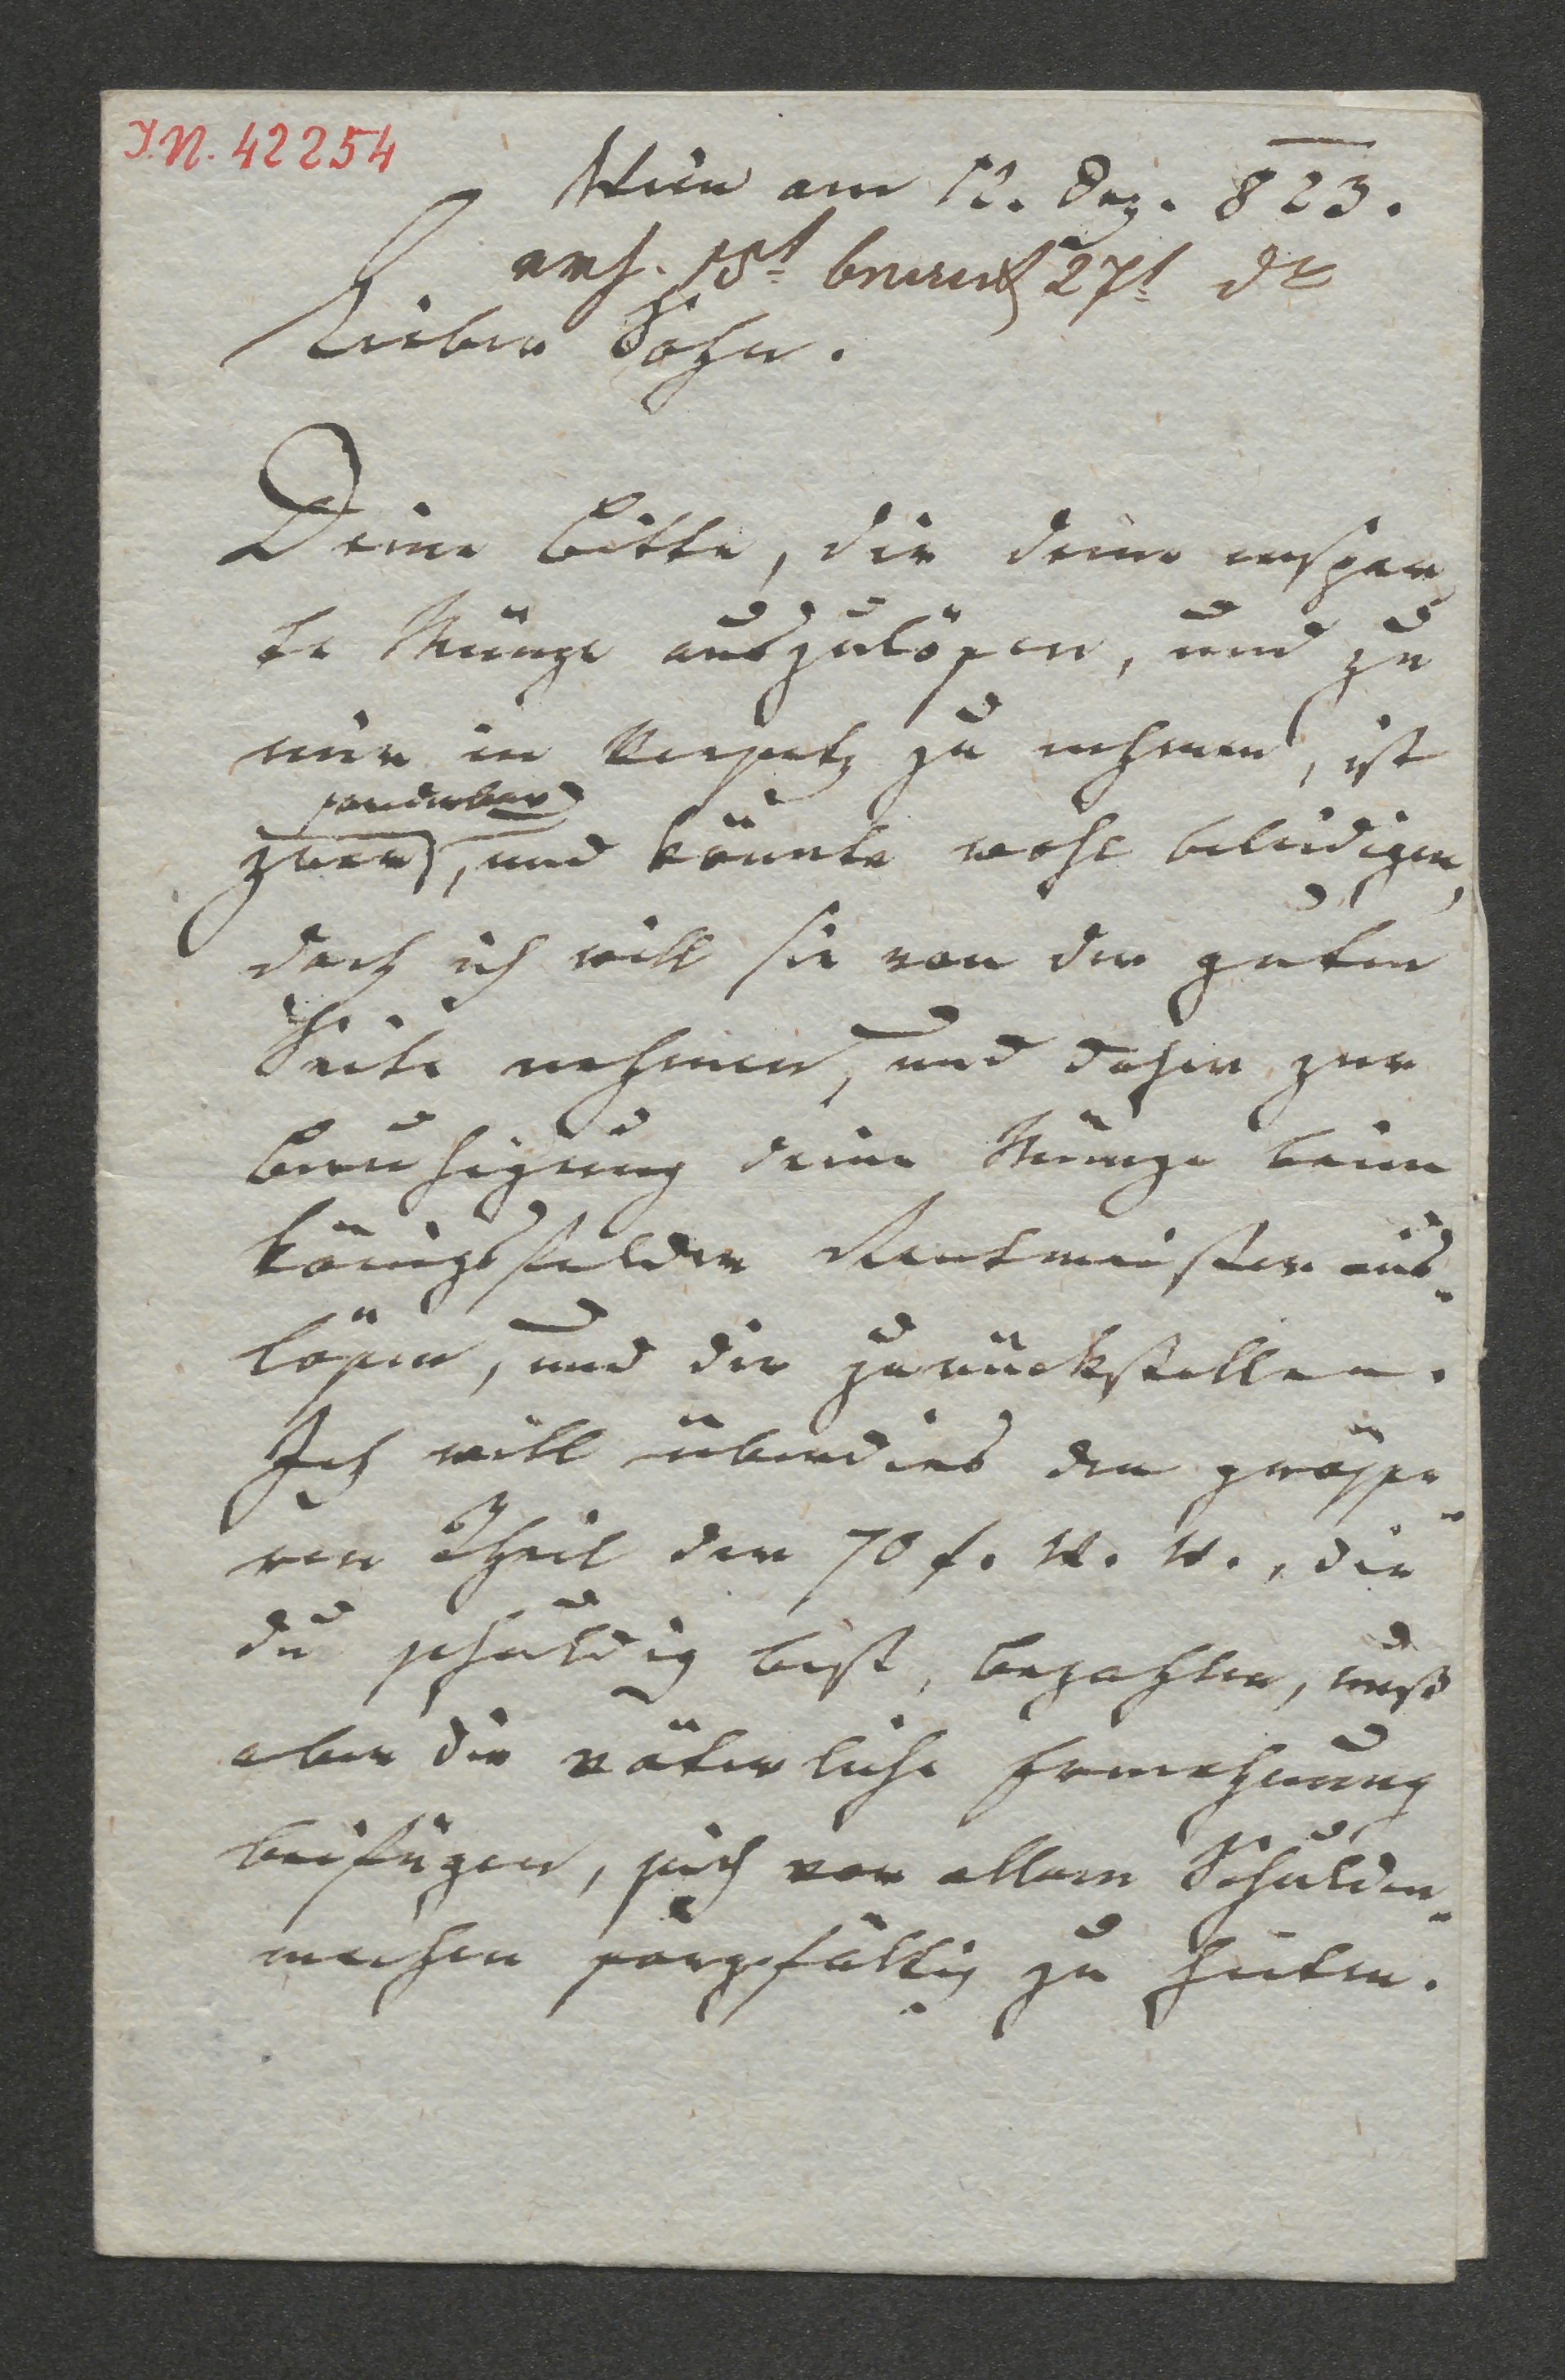 I.N. 42254
Wien am 12. Dez. 823.
erh. 15t beantw 27t dt
Lieber Sohn.
Deine Bitte, dir deine erspar
te Münze auszulösen, und zu
mir in Versatz zu nehmen, ist
sonderbar
zwar, und könnte wohl beleidigen,
doch ich will sie von der guten
Seite nehmen, und daher zur
Beruhigung deine Münze beim
königsfelder Rentmeister aus-
lösen, und dir zurückstellen.
Ich will überdies den grösse-
ren Theil der 70 f. W. W., die
du schuldig bist, bezahlen, muß
aber die väterliche Ermahnung
beifügen, sich vor allem Schulden-
machen sorgfältig zu hüten.